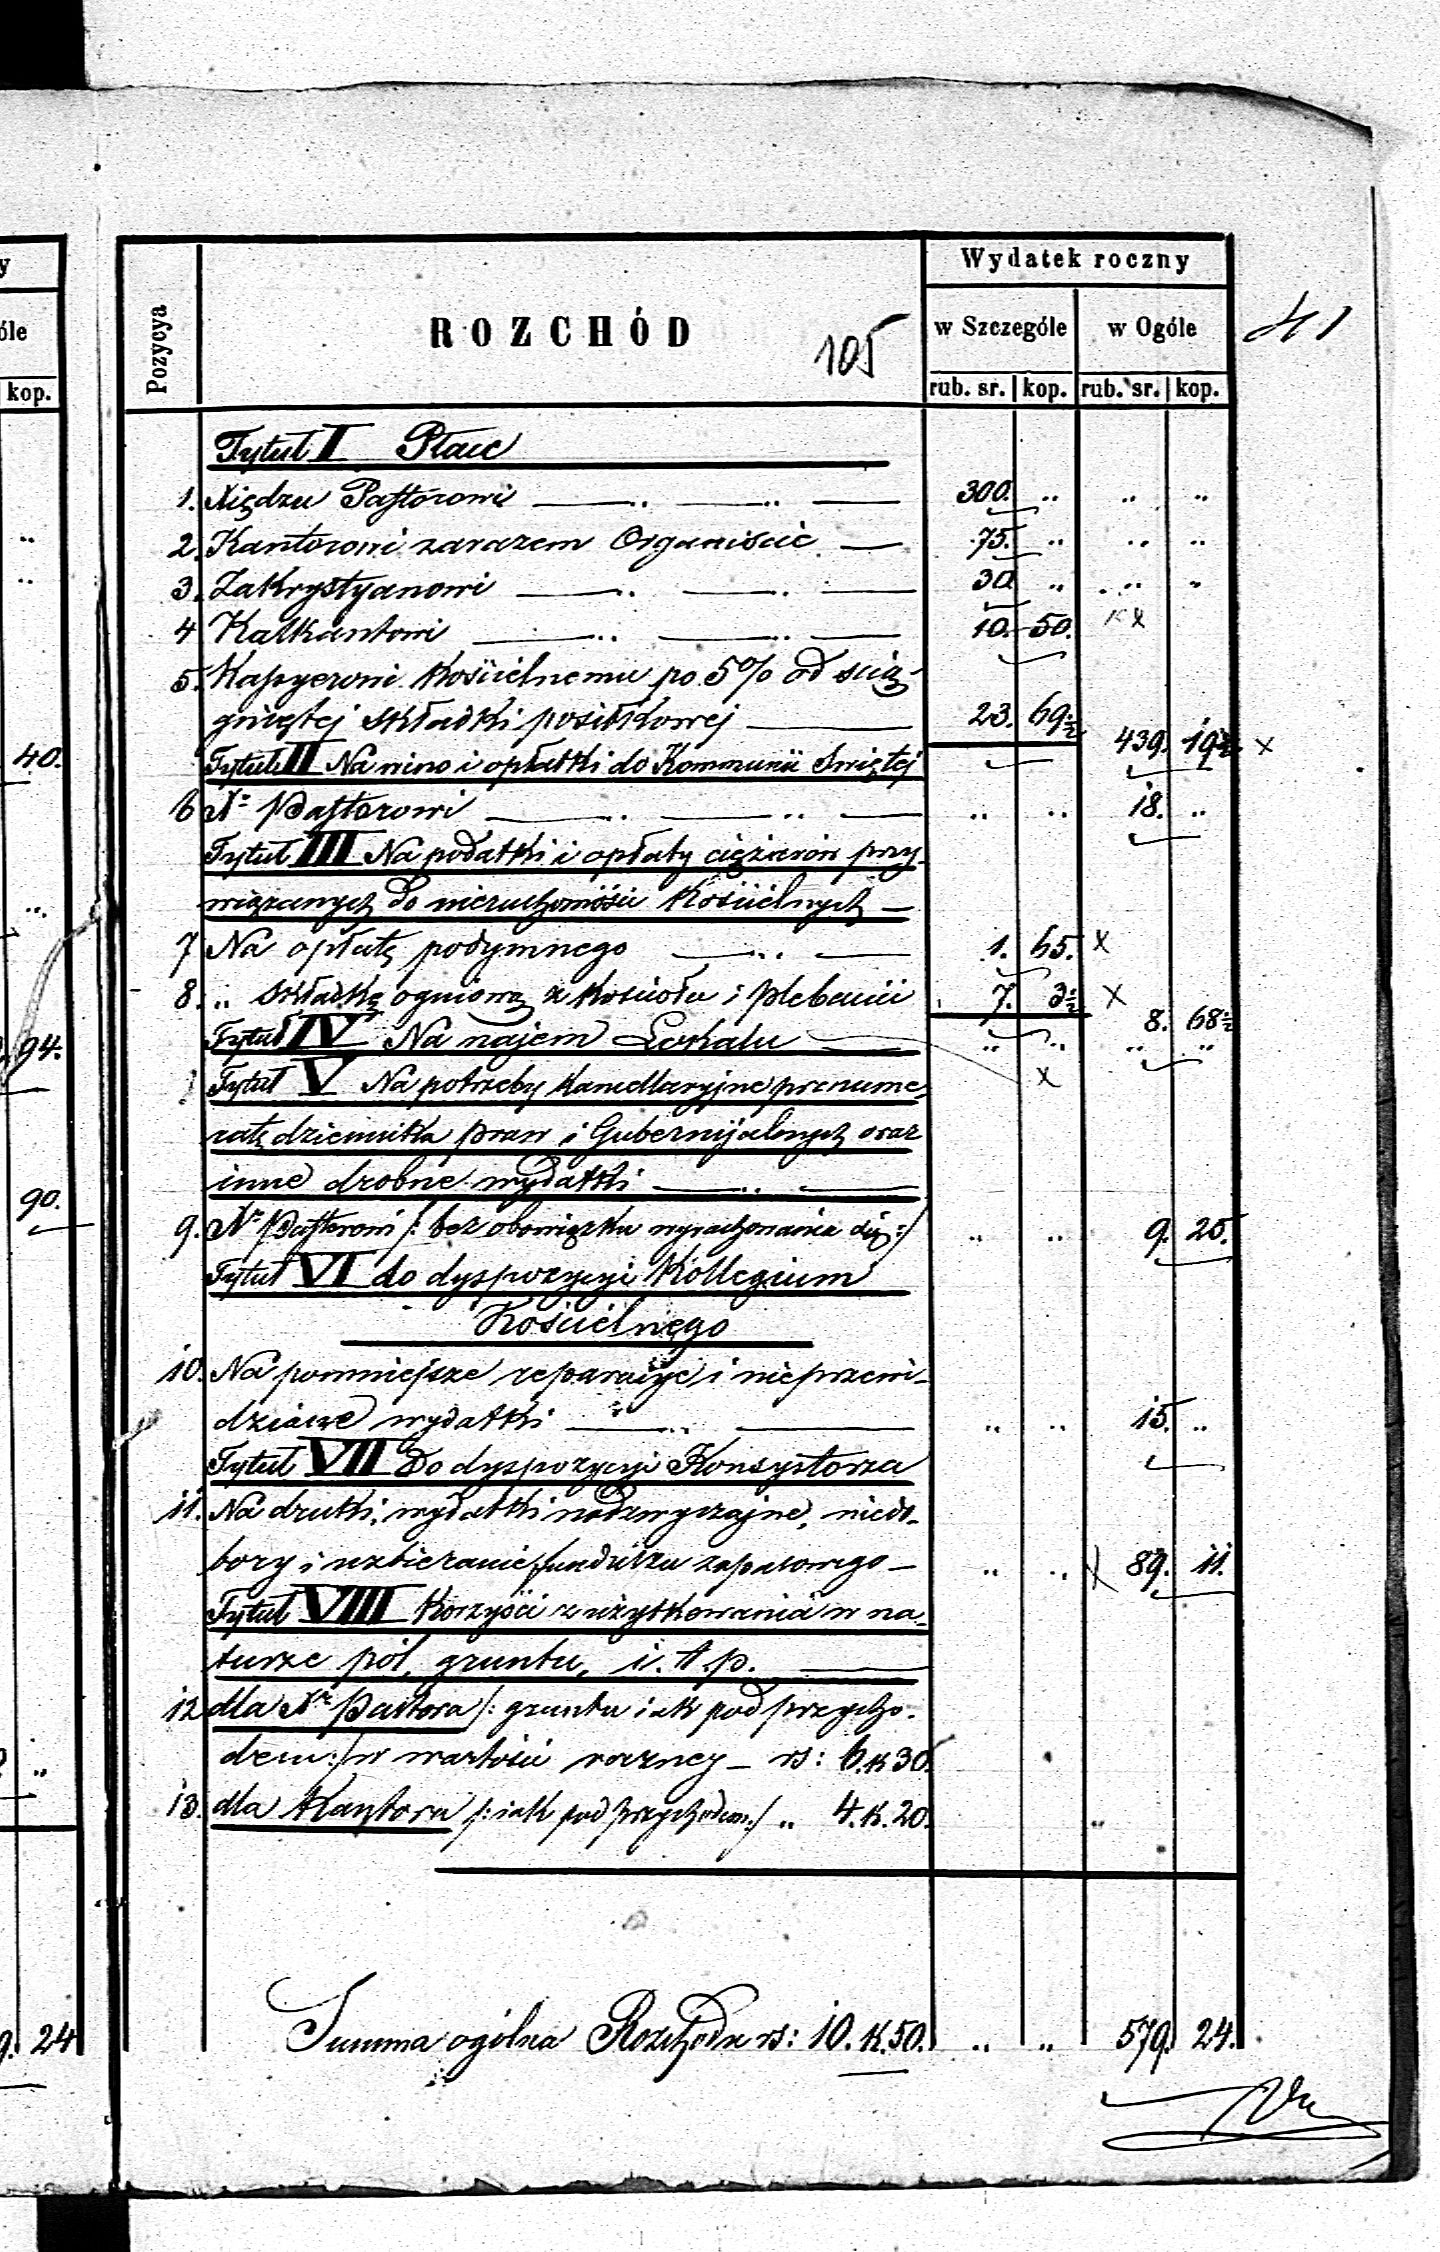 y
óle
kop.
40.
94.
90.
9. 24
Pozycya
ROZCHÓD
105
Wydatek roczny
w Szczególe
w Ogóle
41
rub. sr. kop. rub. sr. kop.
Tytuł I Płace
1. Xiędzu Pastorowi 300. " " "
2. Kantorowi zarazem Organiście 75. " " "
3. Zakrystyanowi 30. " " "
4 Kalkantowi 10. 50. x x
5. Kassyerowi Kościelnemu po 5% od ścią-
gniętej składki posiłkowej 23. 69½ 439. 19½ x
Tytuł II Na wino i opłatki do Kommunii Świętej
6 Xs Pastorowi " " 18. "
Tytuł III Na podatki i opłaty ciężarów przy-
wiązanych do nieruchomości Kościelnych
7 Na opłatę podymnego 1. 65. x
8. " składkę ogniową z kościoła i plebanii 7. 3½ x 8. 68½
Tytuł IV Na najem Lokalu " " " "
Tytuł V Na potrzeby kancellaryjne prenume- x
ratę dziennika praw i Gubernijalnych oraz
inne drobne wydatki
9. Xr Pastorowi /: bez obowiązku wyrachowania się :/ " " 9. 25.
Tytuł VI do dyspozycyi Kollegium
Kościelnego
10. Na pomniejsze reparacye i nieprzewi-
dziane wydatki " " 15. "
Tytuł VII Do dyspozycyi Konsystorza
11. Na druki, wydatki nadzwyczajne, niedo-
bory i uzbieranie funduszu zapasowego " " x 89. 11.
Tytuł VIII Korzyści z użytkowania w na-
turze pól, gruntu, i. t. p.
12 dla Xr Pastora /: gruntu iak pod przycho-
dem :/ w wartości roczney rs: 6. k 30.
13. dla Kantora /: iak pod przychodem :/ " 4. k. 20. "
Summa ogólna Rozchodu rs: 10. k. 50. " " 579. 24.